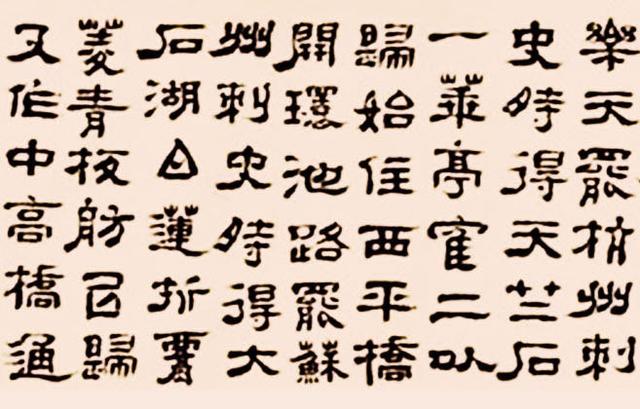 樂天罷杭州刺
史時得天竺石
一華亭隺二以
歸始住西平橋
開環池路罷蘇
州刺史時得大
石湖白蓮折
菱青板舫㠯歸
又作中高橋通